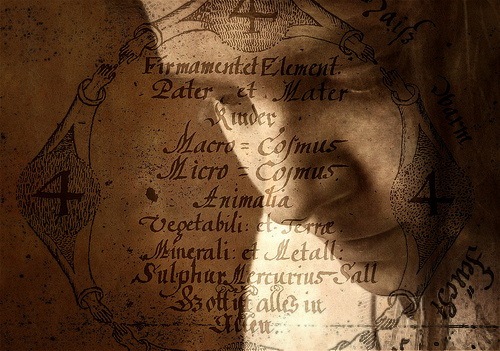 4
Firmament: et Element.
Pater et Mater
Kinder,
Macro = Cosmus
Micro = Cosmus
Animalia
Vegetabili: et Terræ
Minerali: et Metall:
Sulphur Mercurius Sall
Gott ist alles in
Allen:
4
4